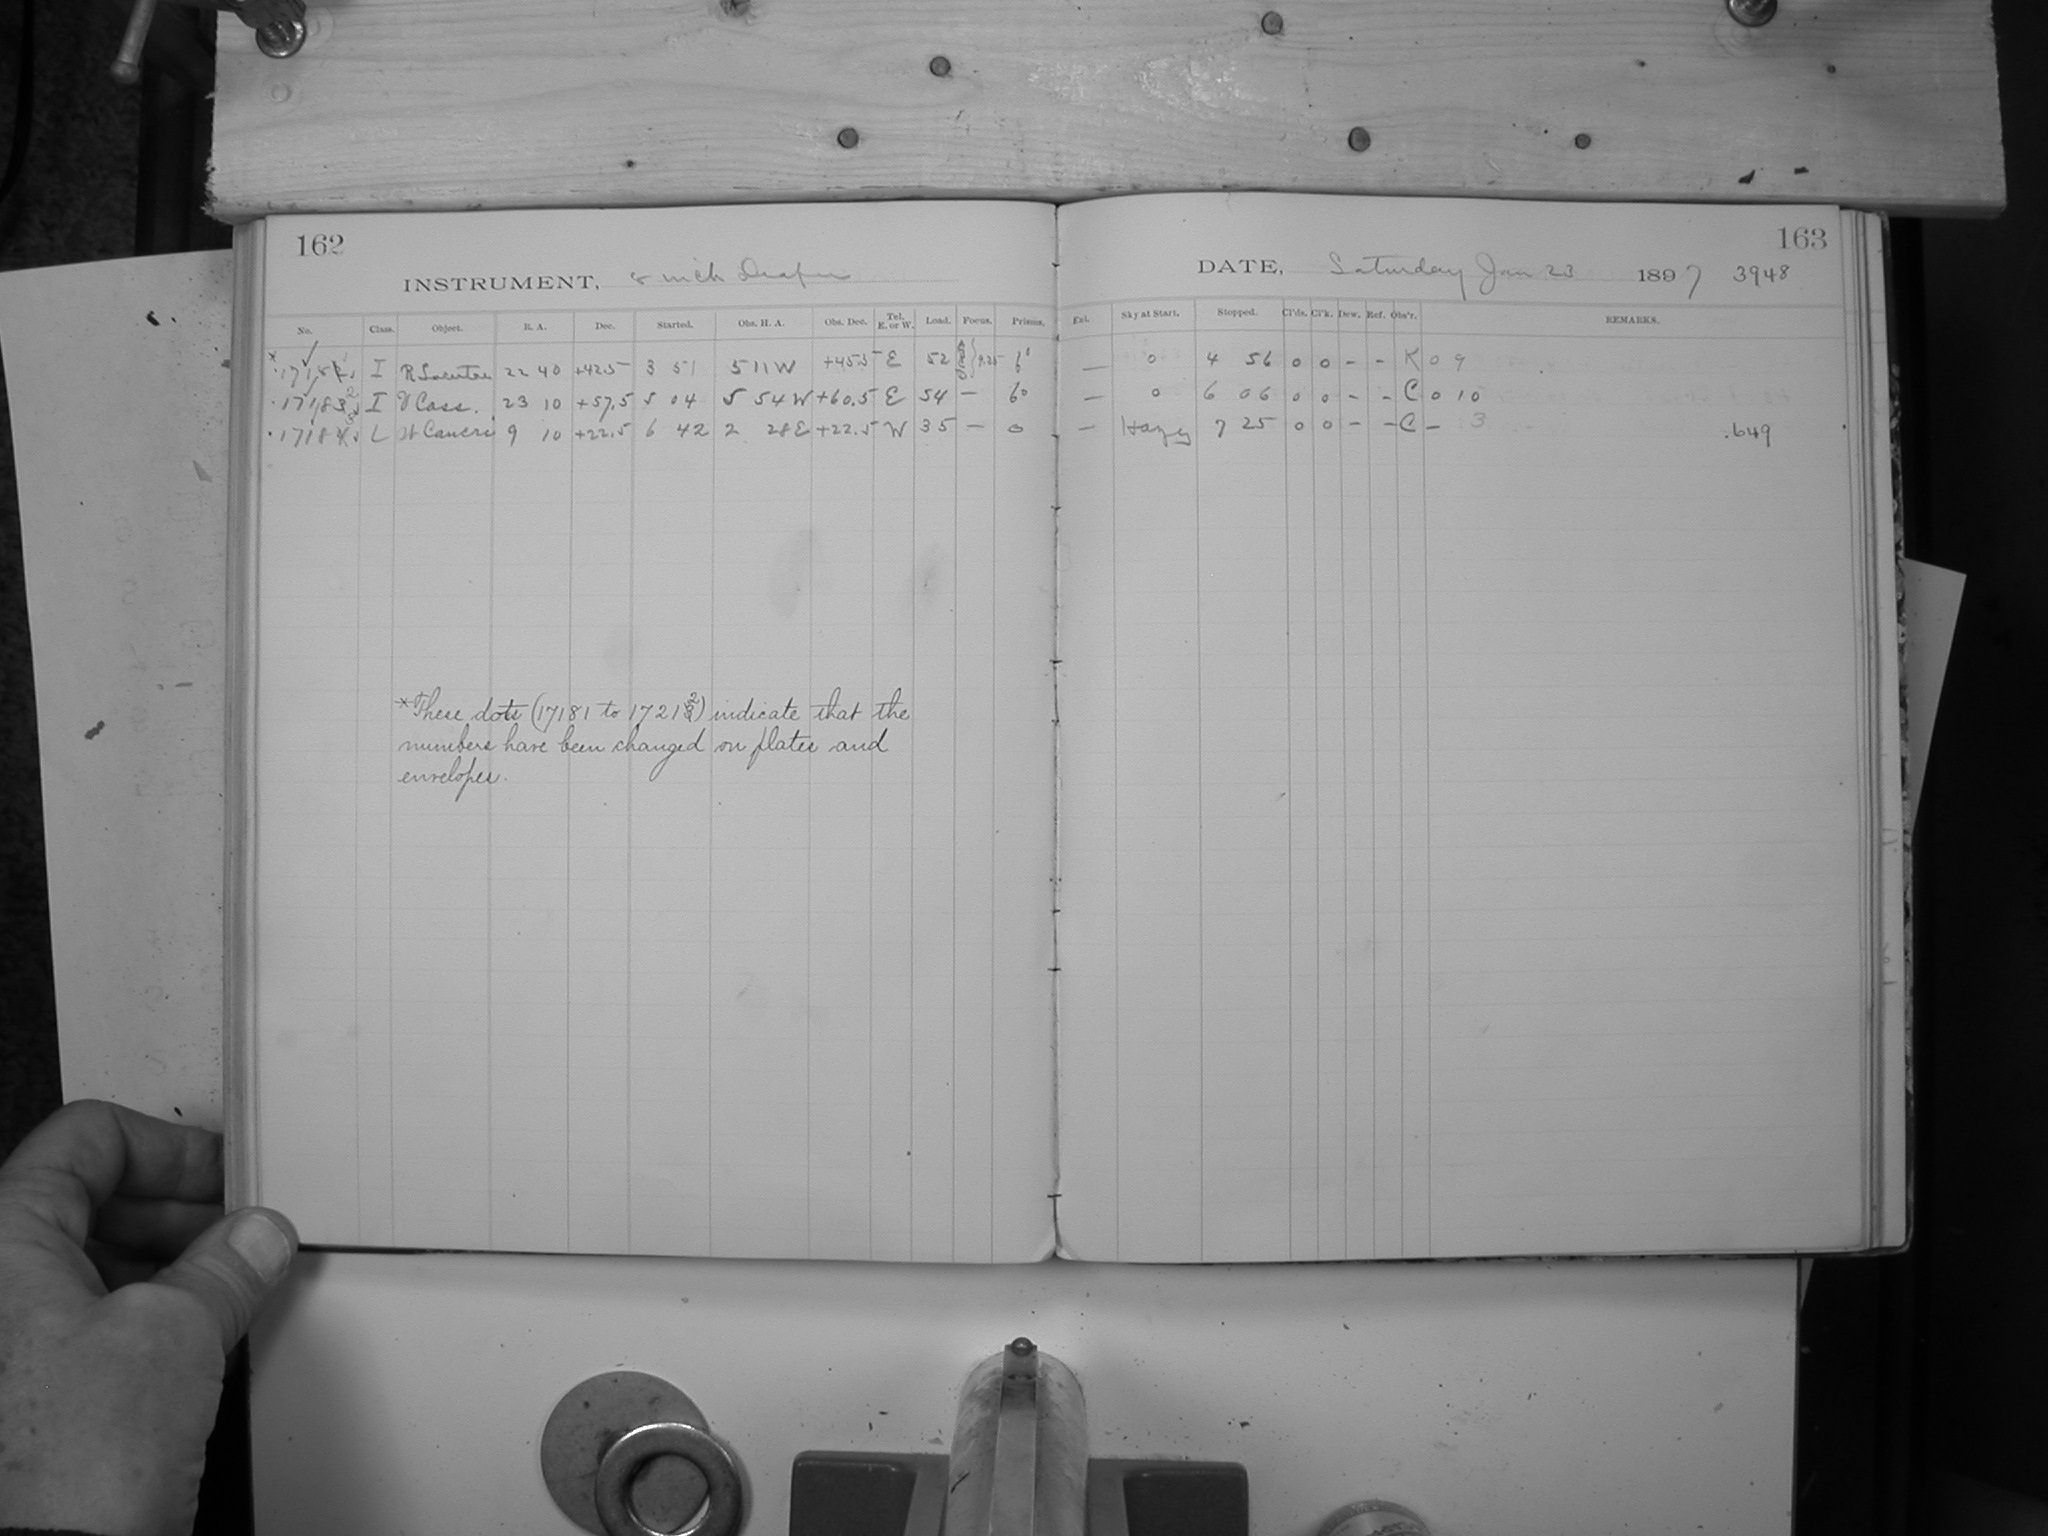 162
INSTRUMENT, 8 inch Draper
No. Class. Object. R. A. Dec. Started. Obs. H. A. Obs. Dec. Tel. E. or W. Load. Focus. Prisms.
I R Lacertae 22 40 +42.5 3 51 5 11 W +45.5 E 52 9.25 6°
I V Cass. 23 10 +57.5 5 04 5 54 W +60.5 E 54 — 6°
L Cancri 9 10 +22.5 6 42 2 28 E +22.5 W 35 — 0
*These dots (17181 to) indicate that the
numbers have been changed on plates and
envelopes.
163
DATE, Saturday Jan 23 1897 3948
Ext. Sky at Start. Stopped. Cl'ds. Cl'k. Dew. Ref. Obs'r. REMARKS.
— 0 4 56 0 0 - - K 0 9
— 0 6 06 0 0 - - C 0 10
— Hazy 7 25 0 0 - - C - 3 .649